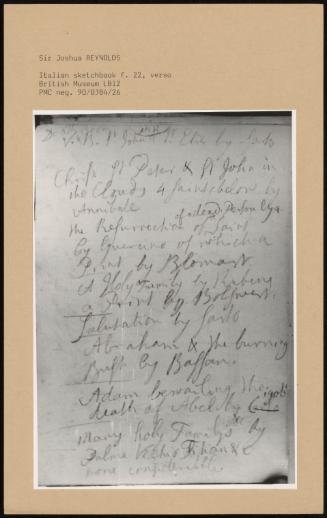 Sir Joshua REYNOLDS
Italian sketchbook f. 22, verso
British Museum LB12
PMC neg. 90/D384/26
St John St Eliz by Sarto
Christ St Peter & St John in
the Clouds 4 saints below by
Annibale
the Resurrection of a dead Person by a Saint
by Guercino of which a
Print by Blomart
A Holy Family by Rubens
a Print by Bolsvert
Salutation by Sarto
Abraham & the burning
Bush by Bassan
Adam bewailing the
death of Abel by
Many holy Familys by
Palma Vechio Titian &c
none considerable